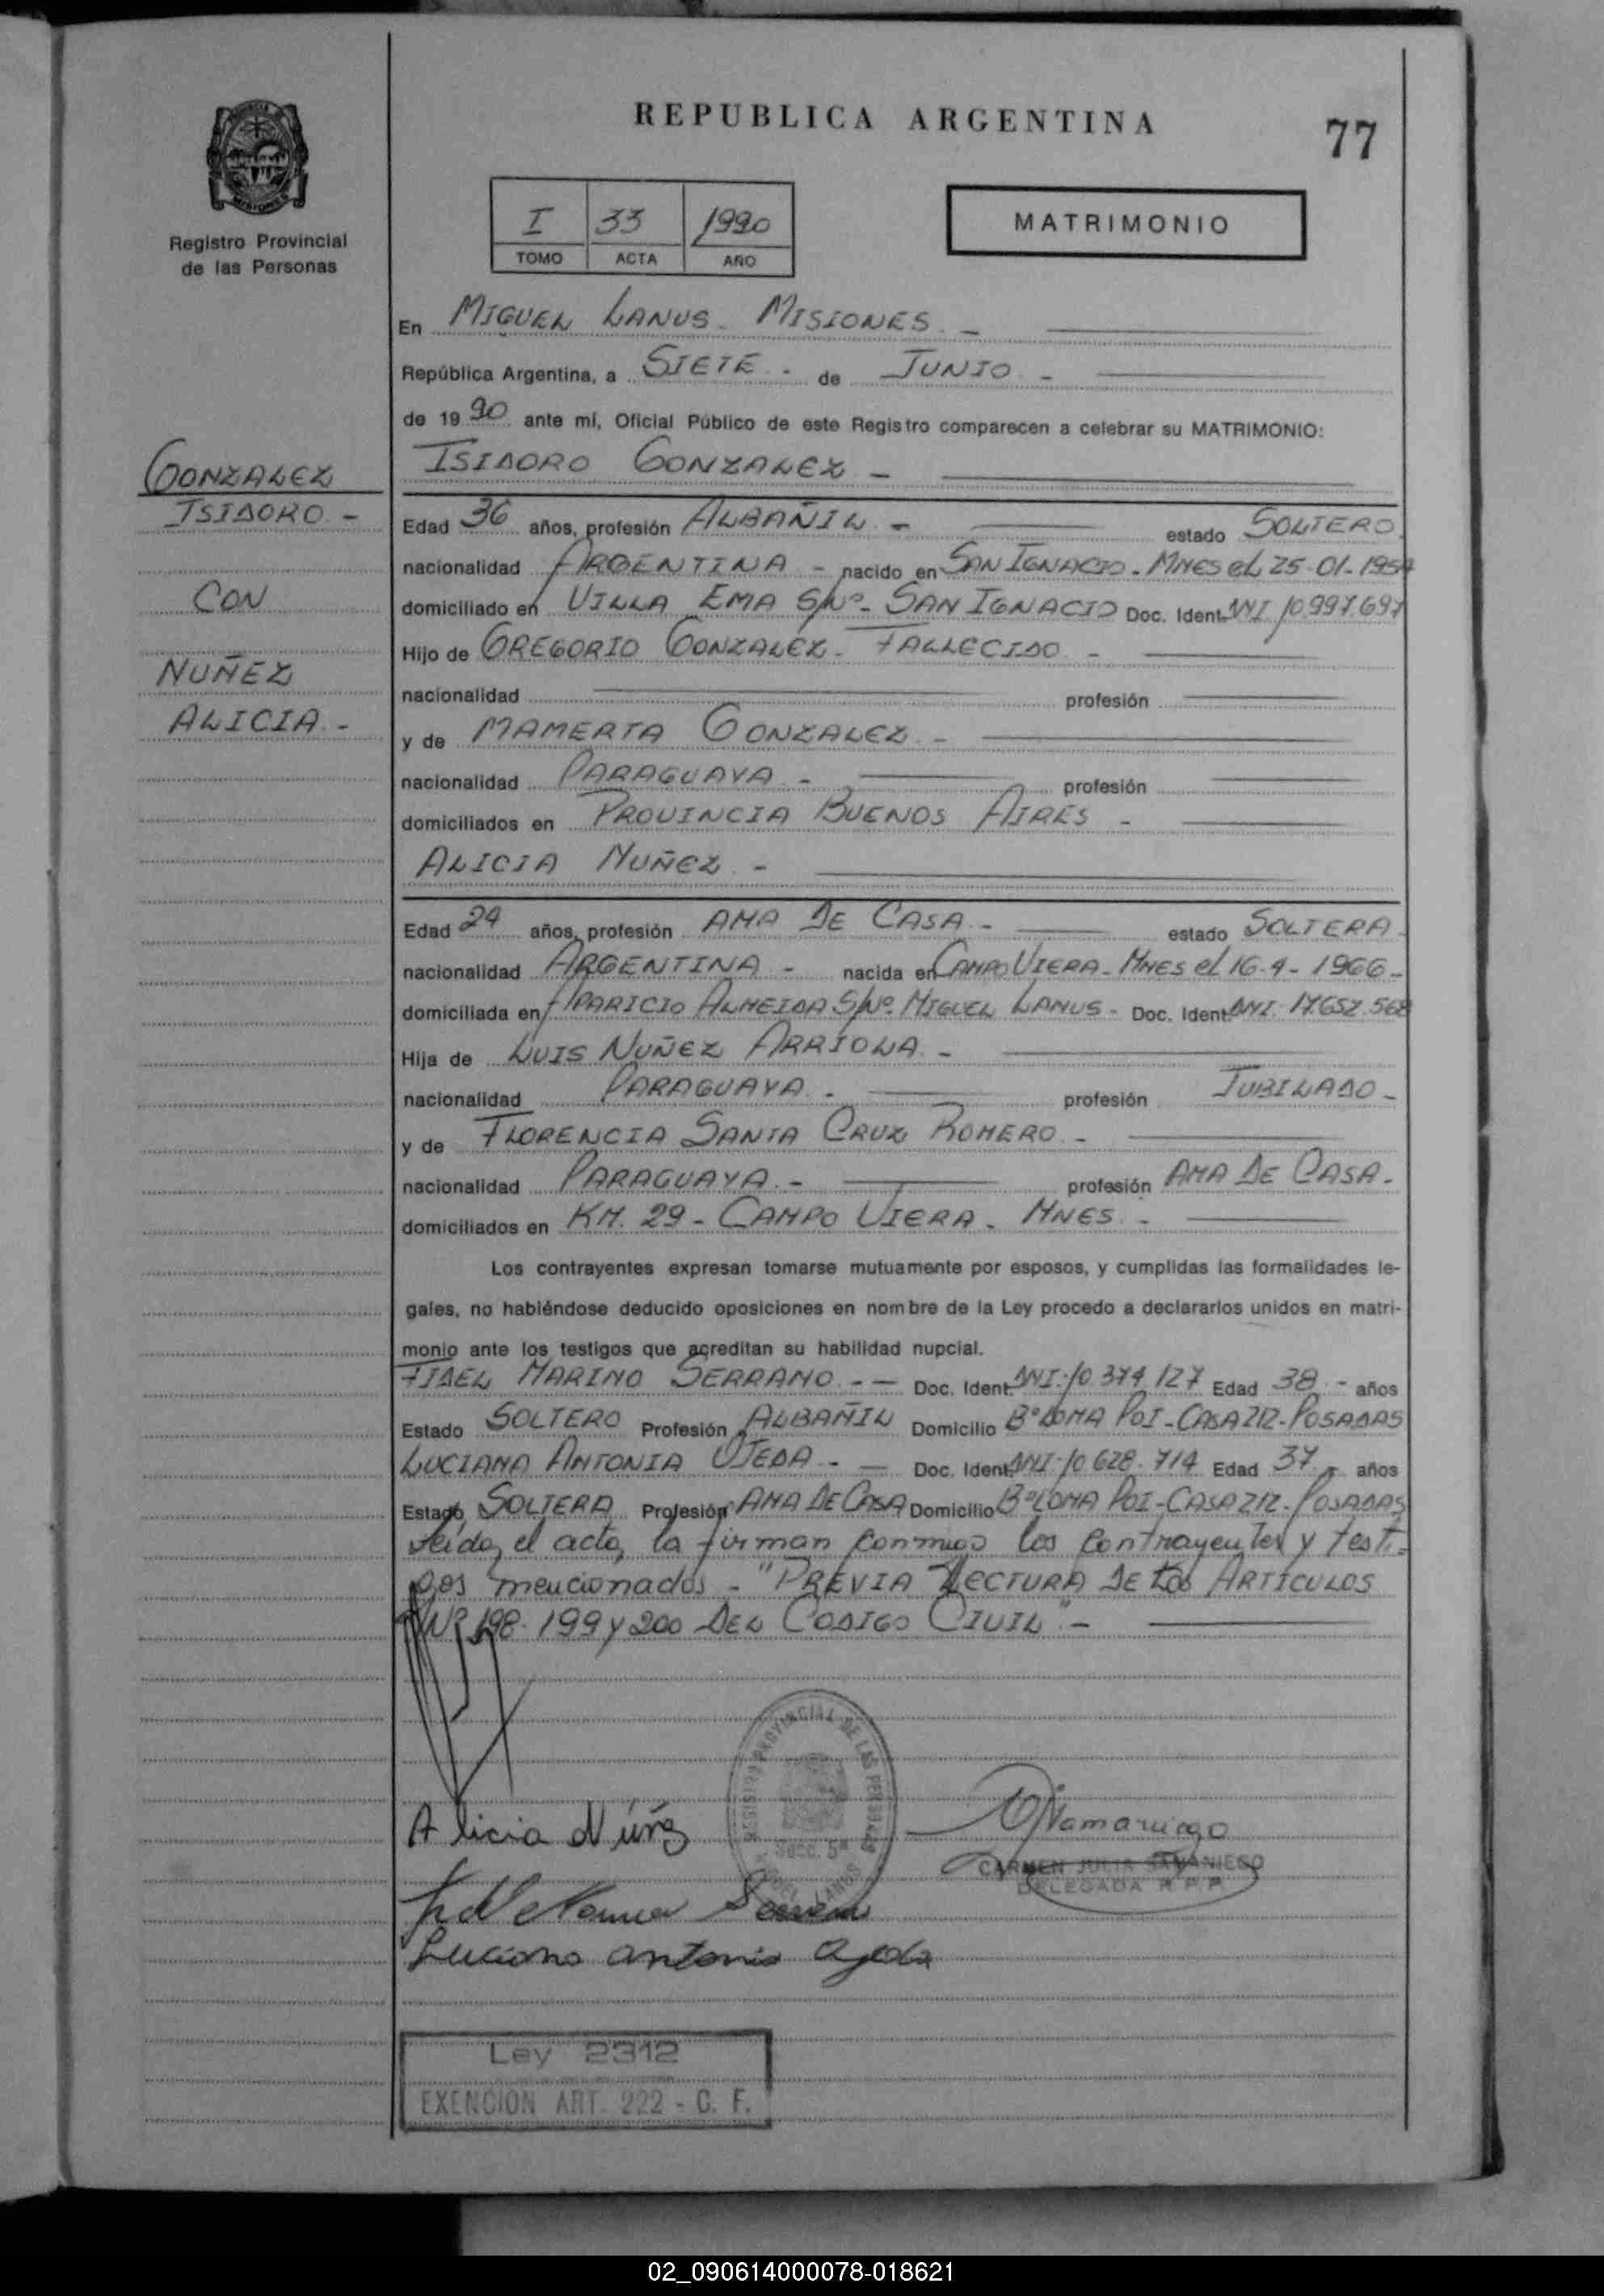 REPUBLICA ARGENTINA
77
Registro Provincial
de las Personas
I 33 1990
TOMO ACTA AÑO
MATRIMONIO
En MIGUEL LANUS - MISIONES -
República Argentina, a SIETE - de JUNIO -
de 1990 ante mí, Oficial Público de este Registro comparecen a celebrar su MATRIMONIO:
GONZALEZ
ISIDORO -
CON
NUÑEZ
ALICIA -
ISIDORO GONZALEZ -
Edad 36 años, profesión ALBAÑIL - estado SOLTERO
nacionalidad ARGENTINA - nacido en SAN IGNACIO - MNES el 25-01-1954
domiciliado en VILLA EMA S/Nº - SAN IGNACIO Doc. Ident. DNI 10.997.697
Hijo de GREGORIO GONZALEZ - FALLECIDO -
nacionalidad profesión
y de MAMERTA GONZALEZ -
nacionalidad PARAGUAYA - profesión
domiciliados en PROVINCIA BUENOS AIRES -
ALICIA NUÑEZ -
Edad 24 años, profesión AMA DE CASA - estado SOLTERA -
nacionalidad ARGENTINA - nacida en CAMPO VIERA - MNES el 16-4-1966 -
domiciliada en APARICIO ALMEIDA S/Nº MIGUEL LANUS - Doc. Ident. DNI. 17.652.568
Hija de LUIS NUÑEZ ARRIOLA -
nacionalidad PARAGUAYA - profesión JUBILADO -
y de FLORENCIA SANTA CRUZ ROMERO -
nacionalidad PARAGUAYA - profesión AMA DE CASA -
domiciliados en KM. 29 - CAMPO VIERA - MNES -
Los contrayentes expresan tomarse mutuamente por esposos, y cumplidas las formalidades le-
gales, no habiéndose deducido oposiciones en nombre de la Ley procedo a declararlos unidos en matri-
monio ante los testigos que acreditan su habilidad nupcial.
FIDEL MARINO SERRANO - - Doc. Ident. DNI. 10.374.127 Edad 38 - años
Estado SOLTERO Profesión ALBAÑIL Domicilio Bº LOMA POI - CASA 212 - POSADAS
LUCIANA ANTONIA OJEDA - - Doc. Ident. DNI. 10.628.714 Edad 37 - años
Estado SOLTERA Profesión AMA DE CASA Domicilio Bº LOMA POI - CASA 212 - POSADAS
Leida, el acta, la firman conmigo los contrayentes y testi-
gos mencionados - "PREVIA LECTURA DE LOS ARTICULOS
Nº 198-199 y 200 DEL CODIGO CIVIL" -
REGISTRO PROVINCIAL DE LAS PERSONAS
Secc. 5ª
MIGUEL LANUS
Alicia Núñez
CARMEN JULIA SAMANIEGO
DELEGADA R.P.P.
Luciana antonia ojeda
Ley 2312
EXENCION ART. 222 - C. F.
02_090614000078-018621